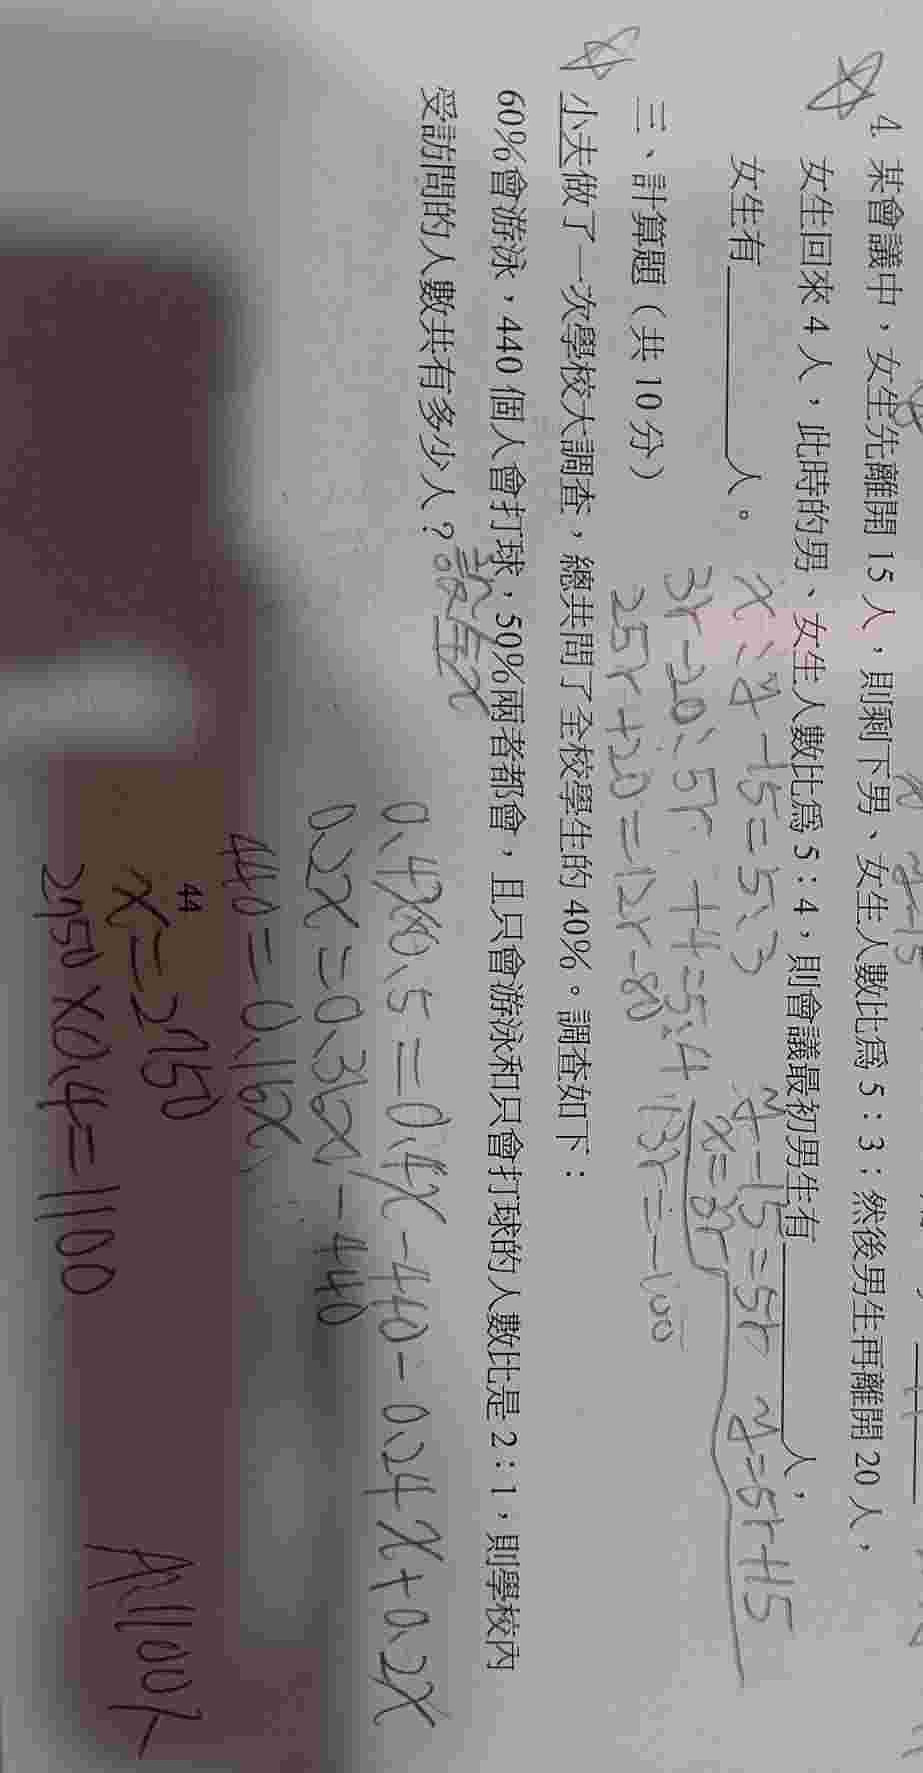 4. 某會議中，女生先離開 15 人，則剩下男、女生人數比為 5：3；然後男生再離開 20 人，
女生回來 4 人，此時的男、女生人數比為 5：4，則會議最初男生有________人，
女生有________人。
x：y-15=5：3
y-15=3r y=3r+15
x=5r
25r+20=12r-80
13r=-100
三、計算題（共 10 分）
小夫做了一次學校大調查，總共問了全校學生的 40%。調查如下：
60%會游泳，440 個人會打球，50%兩者都會，且只會游泳和只會打球的人數比是 2：1，則學校內
受訪問的人數共有多少人？
設全x
0.4x×0.5=0.4x-440-0.24x+0.2x
0.2x=0.36x-440
440=0.16x
x=2750
44
2750×0.4=1100
A:1100人